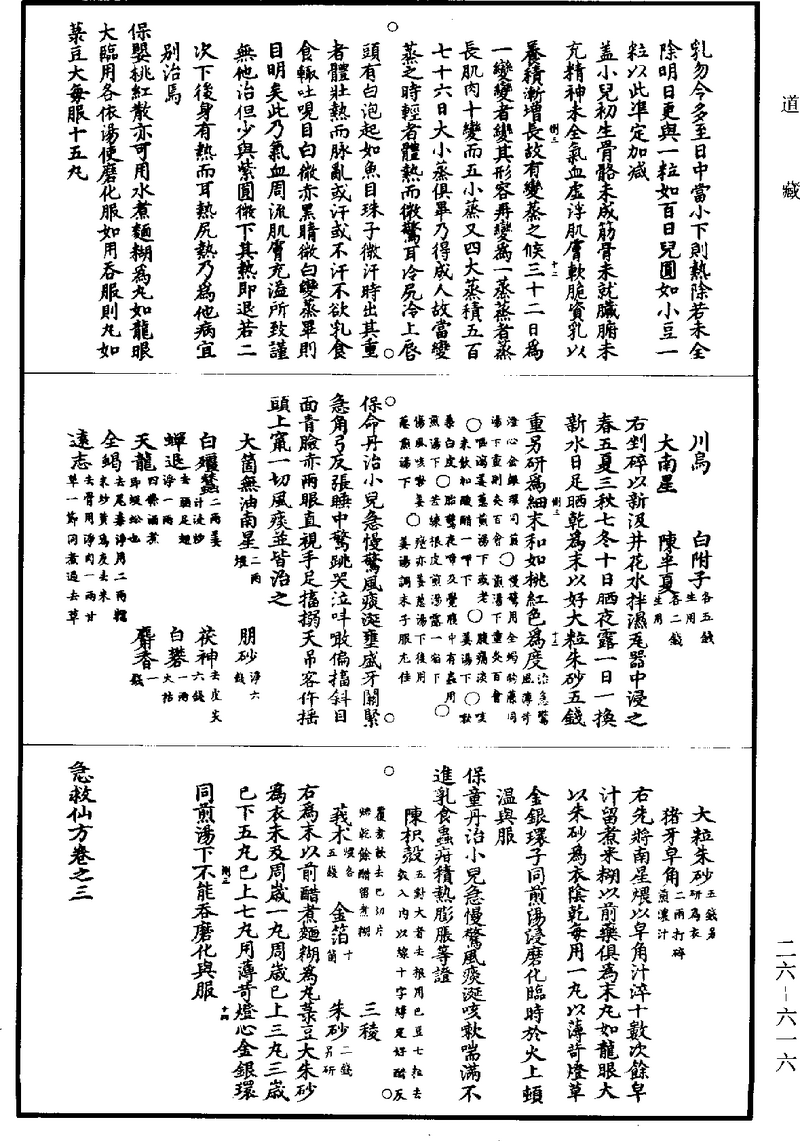 道藏
乳勿令多至日中當小下則熱除若未全
除明日更與一粒如百日兒圓如小豆一
粒以此準定加減
蓋小兒初生骨骼未成筋骨未就臟腑未
充精神未全氣血虛浮肌膚軟脆資乳以
養積漸增長故有變蒸之候三十二日為
一變變者變其形容再變為一蒸蒸者蒸
長肌肉十變而五小蒸又四大蒸積五百
七十六日大小蒸俱畢乃得成人故當變
蒸之時輕者體熱而微驚耳冷尻冷上唇
頭有白泡起如魚目珠子微汗時出其重
者體壯熱而脉亂或汗或不汗不欲乳食
食輒吐哯目白微赤黑睛微白變蒸畢則
目明矣此乃氣血周流肌膚充溢所致謹
無他治但少與紫圓微下其熱即退若二
次下後身有熱而耳熱尻熱乃為他病宜
別治焉
保嬰桃紅散亦可用水煮麵糊為丸如龍眼
大臨用各依湯使磨化服如用吞服則丸如
菉豆大每服十五丸
川烏 白附子各五錢生用
大南星 陳半夏各二錢生用
右剉碎以新汲井花水拌濕甆器中浸之
春五夏三秋七冬十日晒夜露一日一換
新水日足晒乾為末以好大粒朱砂五錢
重另研為細末和如桃紅色為度治急驚風薄荷
燈心金銀環同煎○慢驚用全蝎鈎藤同
湯下重則灸百會煎湯下重灸百會
○嘔瀉薑蔥煎湯下或老○腹痛淡
米飲和酸醋一呷下薑湯下○
桑白皮○胎驚夜啼及覺腹中有蟲用○
煎湯下苦練根皮煎湯露一宿下
傷風咳嗽薑○瘧亦薑蔥湯下後用
蔥煎湯下○薑湯調末子服尤佳
保命丹治小兒急慢驚風痰涎壅盛牙關緊
急角弓反張睡中驚跳哭泣叫啀偏搐斜目
面青臉赤兩眼直視手足搐搦天吊客忤搖
頭上竄一切風痰並皆治之
大箇無油南星二兩煨 朋砂淨六錢
白殭蠶二兩薑汁浸炒 茯神去皮六錢
蟬退去翅足淨一兩 白礬一兩火枯
天龍四條酒煮即蜈蚣也 麝香一錢
全蝎去尾毒淨用二兩糯米炒黃為度去米
遠志去骨用淨肉一兩甘草一節同煮過去草
大粒朱砂五錢另研為衣
猪牙皁角二兩打碎煎濃汁
右先將南星煨以皁角汁淬十數次餘皁
汁留煮米糊以前藥俱為末丸如龍眼大
以朱砂為衣陰乾每用一丸以薄荷燈草
金銀環子同煎湯浸磨化臨時於火上頓
溫與服
保童丹治小兒急慢驚風痰涎咳嗽喘滿不
進乳食蟲疳積熱膨脹等證
陳枳殼五對大者去穰用巴豆七粒去殼入內以線十字縛定好醋反覆煮軟去巴切片焙乾餘醋留煮糊
三稜
莪朮煨各五錢 金箔十箇 朱砂二錢另研
右為末以前醋煮麵糊為丸菉豆大朱砂
為衣未及周歲一丸周歲已上三丸三歲
已下五丸已上七丸用薄荷燈心金銀環
同煎湯下不能吞磨化與服
急救仙方卷之三
二六-六一六